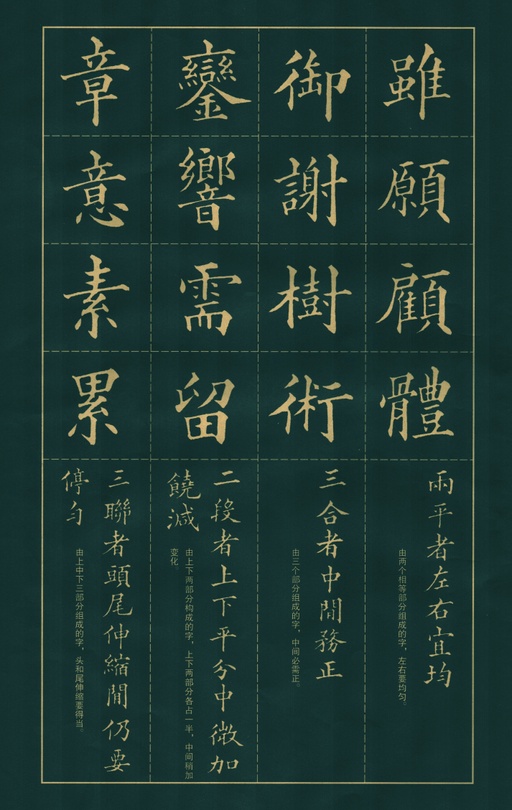 雖
願
顧
體
兩平者左右宜均
由两个相等部分组成的字，左右要均匀。
御
謝
樹
術
三合者中間務正
由三个部分组成的字，中间必需正。
鑾
響
需
留
二段者上下平分中微加
饒減
由上下两部分构成的字，上下两部分各占一半，中间稍加
变化
章
意
素
累
三聯者頭尾伸縮間仍要
停勻
由上中下三部分组成的字，头和尾伸缩要得当。